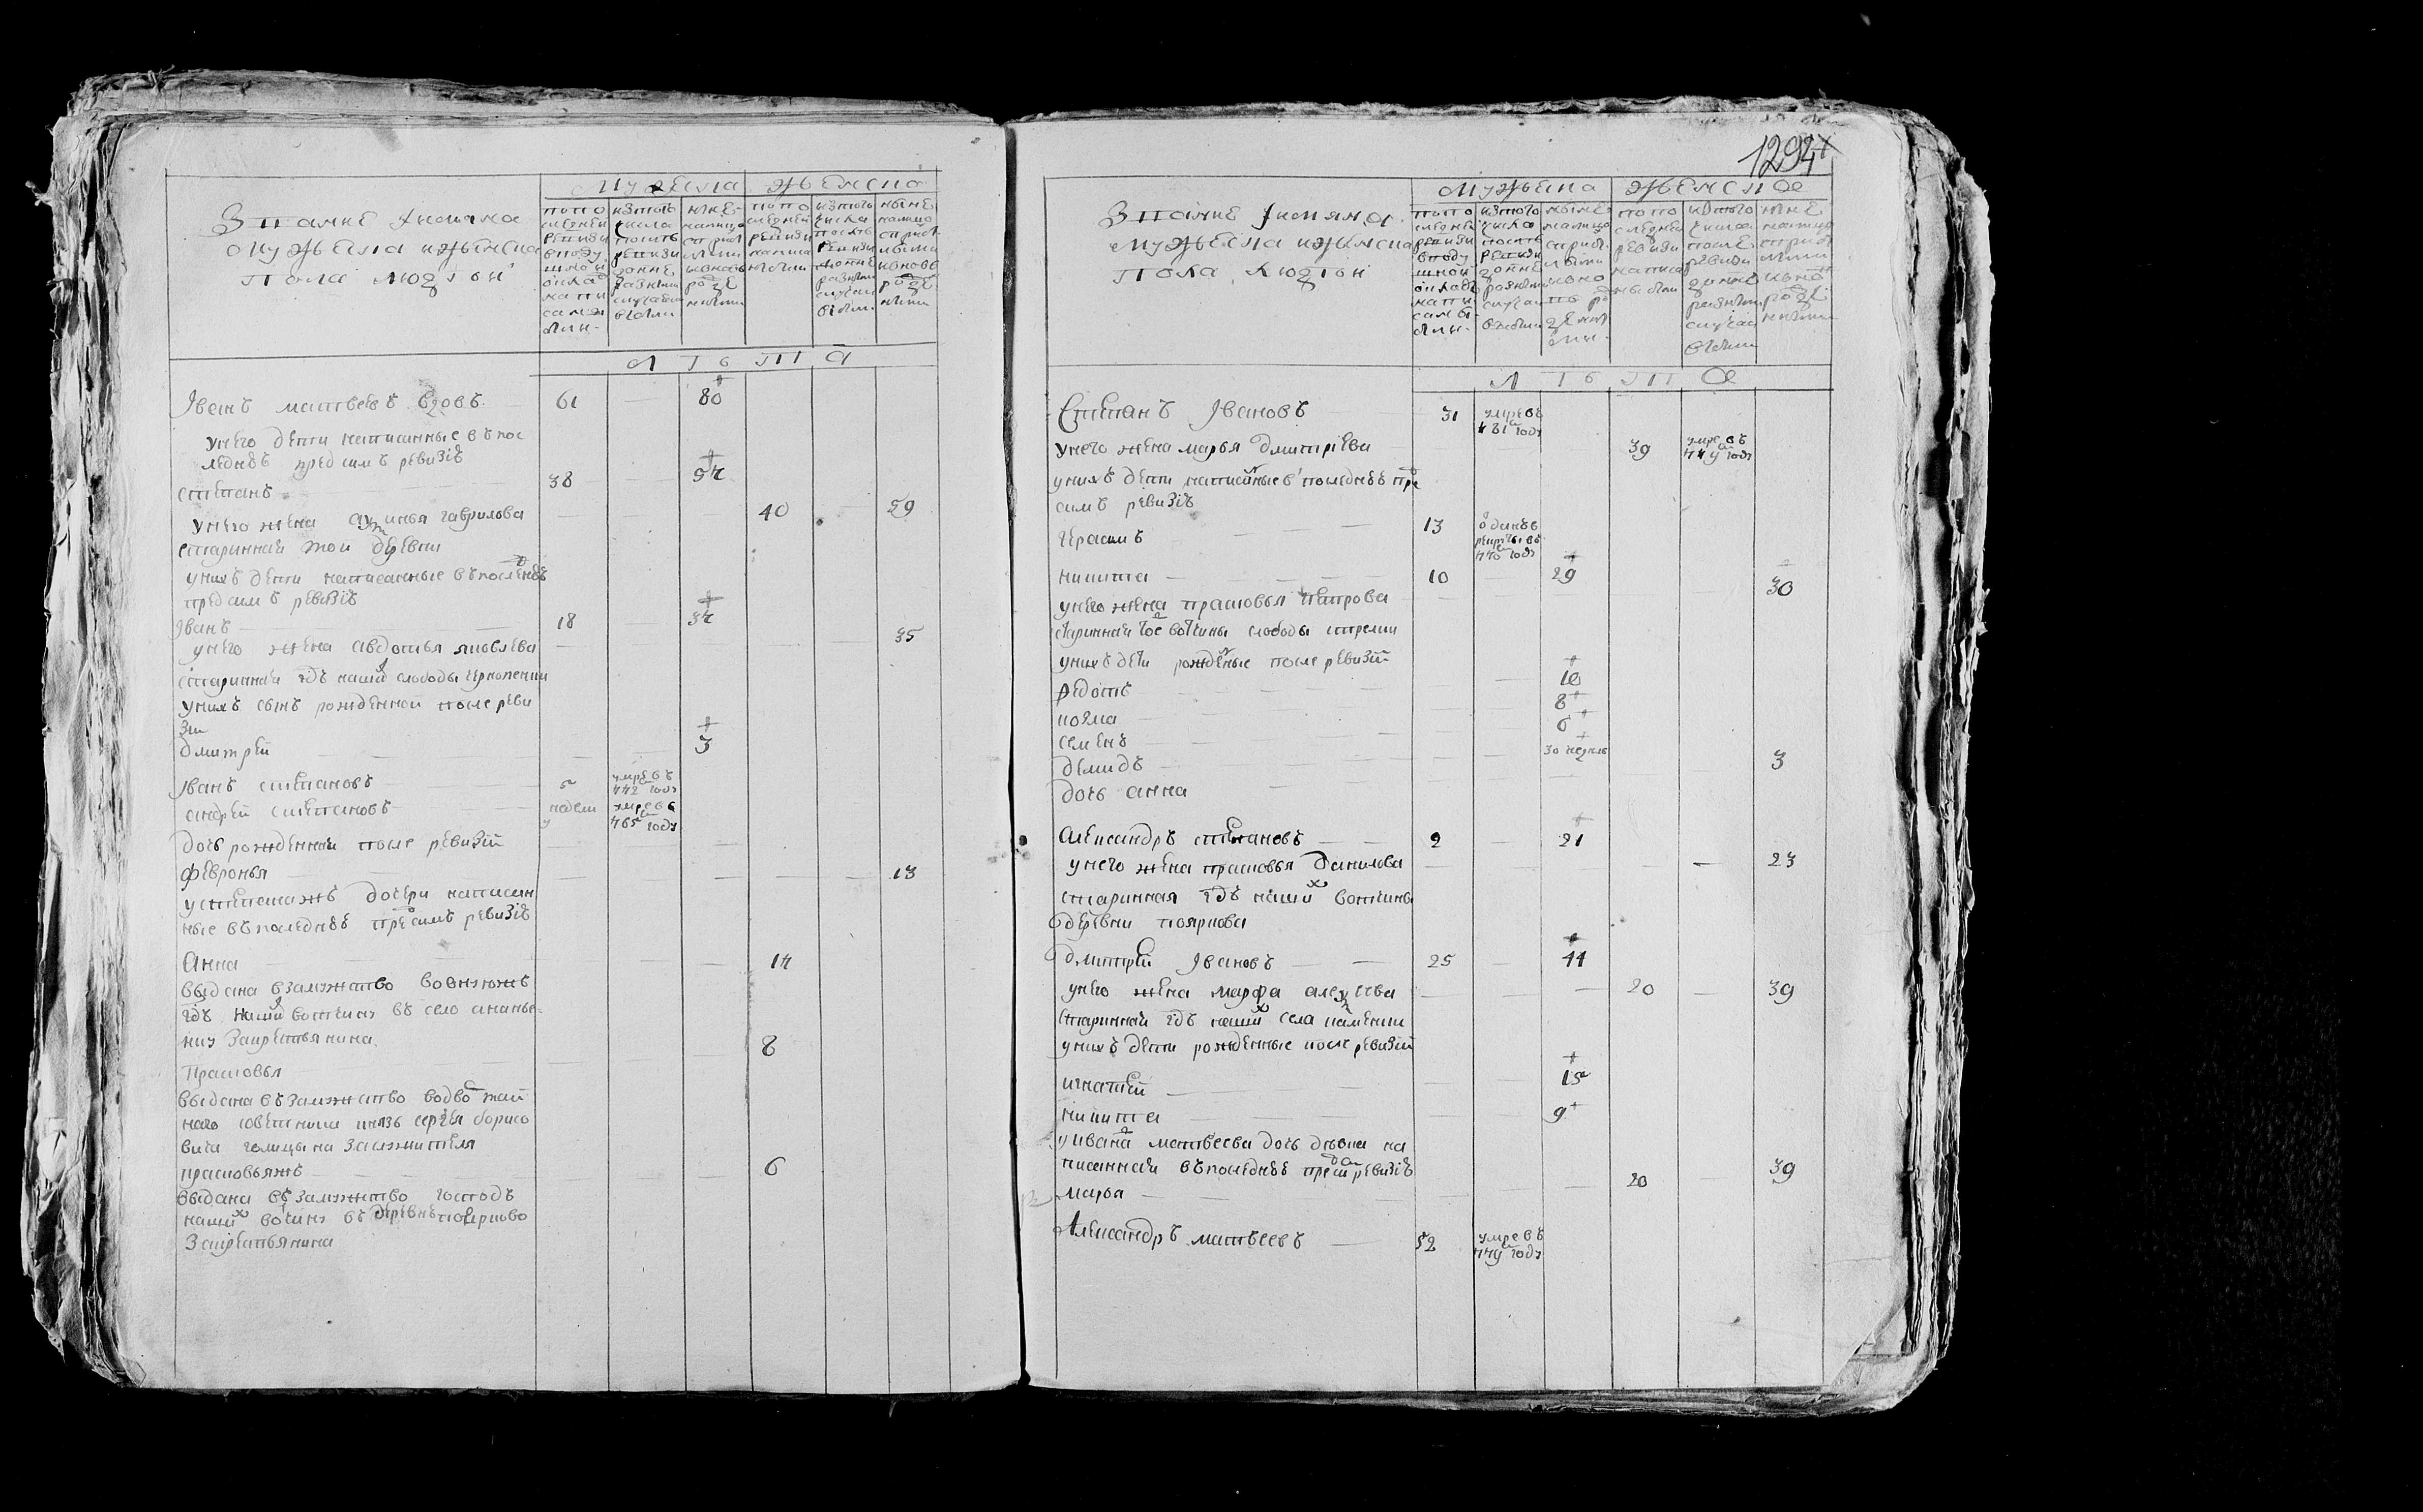 Званіе и имяна
мужеска и женска
пола людтой
мужеска
женска
по по
следней
ревизи
в поду
шной
оклад
напи
саны
были
из того
числа
после
ревизи
до нне
разным
случаем
выбыли
нне
налицо
с прибы
лыми
и вновь
рожде
нными
по по
следней
ревизи
написа
ны были
из того
числа
после
ревизи
до нне
разным
случаи
выбыли
ныне
налицо
с прибы
лыми
и вновь
рожде
нными
Л Ѣ Т А
Іванъ матвеевъ вдовъ 61 80
у него дети написанные въ пос
леднѣе пред симъ ревизіѣ
степанъ 38 57
у него жена аудинья гаврилова 40 59
старинная той деревни
у нихъ дети написанные въ последнѣ
пред симъ ревизіѣ
Іванъ 18 37
у него жена авдотья яковлева 35
старинная гдѣ нашихъ слободы
у нихъ сынъ рожденной после реви
зи
дмитрей 3
Іванъ степановъ 5 умре въ 772м году
андрей степановъ недели умре въ 765м году
дочь рожденная после ревизій
февронья 13
у степанажъ дочери написан
ные въ последнѣе пред симъ ревизіѣ
Анна 14
выдана в замужство во оную жъ
гдъ нашихъ вотчину въ село ананье
ну за крестьянина
Прасковья 8
выдана въ замужство во дво тай
наго советника князь сергея борисо
вича голицына за служителя
прасковьяжъ 6
выдана въ замужство господъ
нашихъ вотчину въ деревню поярково
за крестьянина
1294
Званіе Имяна
мужеска и женска
пола людтой
мужеска
женска
по по
следне
ревизи
в поду
шной
окладъ
напи
саны
были
из того
числа
после
ревизи
до нне
разным
случаи
выбыли
ныне
налицо
с прибы
лыми
и вно
въ ро
жден
ными
по по
следней
ревизи
написа
ны были
из того
числа
после
ревизи
до нне
разными
случаи
выбыли
нне
налицо
с прибы
лыми
и вновь
рожде
нными
Л Ѣ Т А
Степанъ Івановъ 31 умре въ 781м году
у него жена марья дмитріева 39 умре въ 779м году
у нихъ дети написанные в последнѣе пред
симъ ревизіѣ
герасимъ 13 отданъ въ рекруты въ 770м году
никита 10 29
у него жена прасковья петрова 30
старинная тое вотчины слободы
у нихъ дети рожденые после ревизій
Федотъ 10
козма 8
семенъ 6
демидъ 30 недель
дочь анна 3
Александръ степановъ 2 21
у него жена прасковья данилова 23
старинная гдъ нашихъ вотчины
деревни пояркова
дмитрей Івановъ 25 44
у него жена марфа алексеева 20 39
старинная гдъ нашихъ села каменки
у нихъ дети рожденные после ревизій
игнатей 15
никита 9
у ивана матвеева дочь девка на
писанная въ последнѣе пред сим ревизіѣ
марья 20 39
Александръ матвеевъ 52 умре въ 779м году